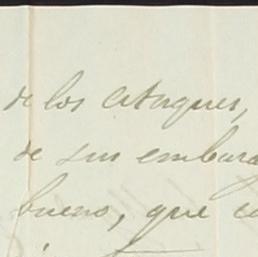 de los ataques,
de sus embara
bueno, que co